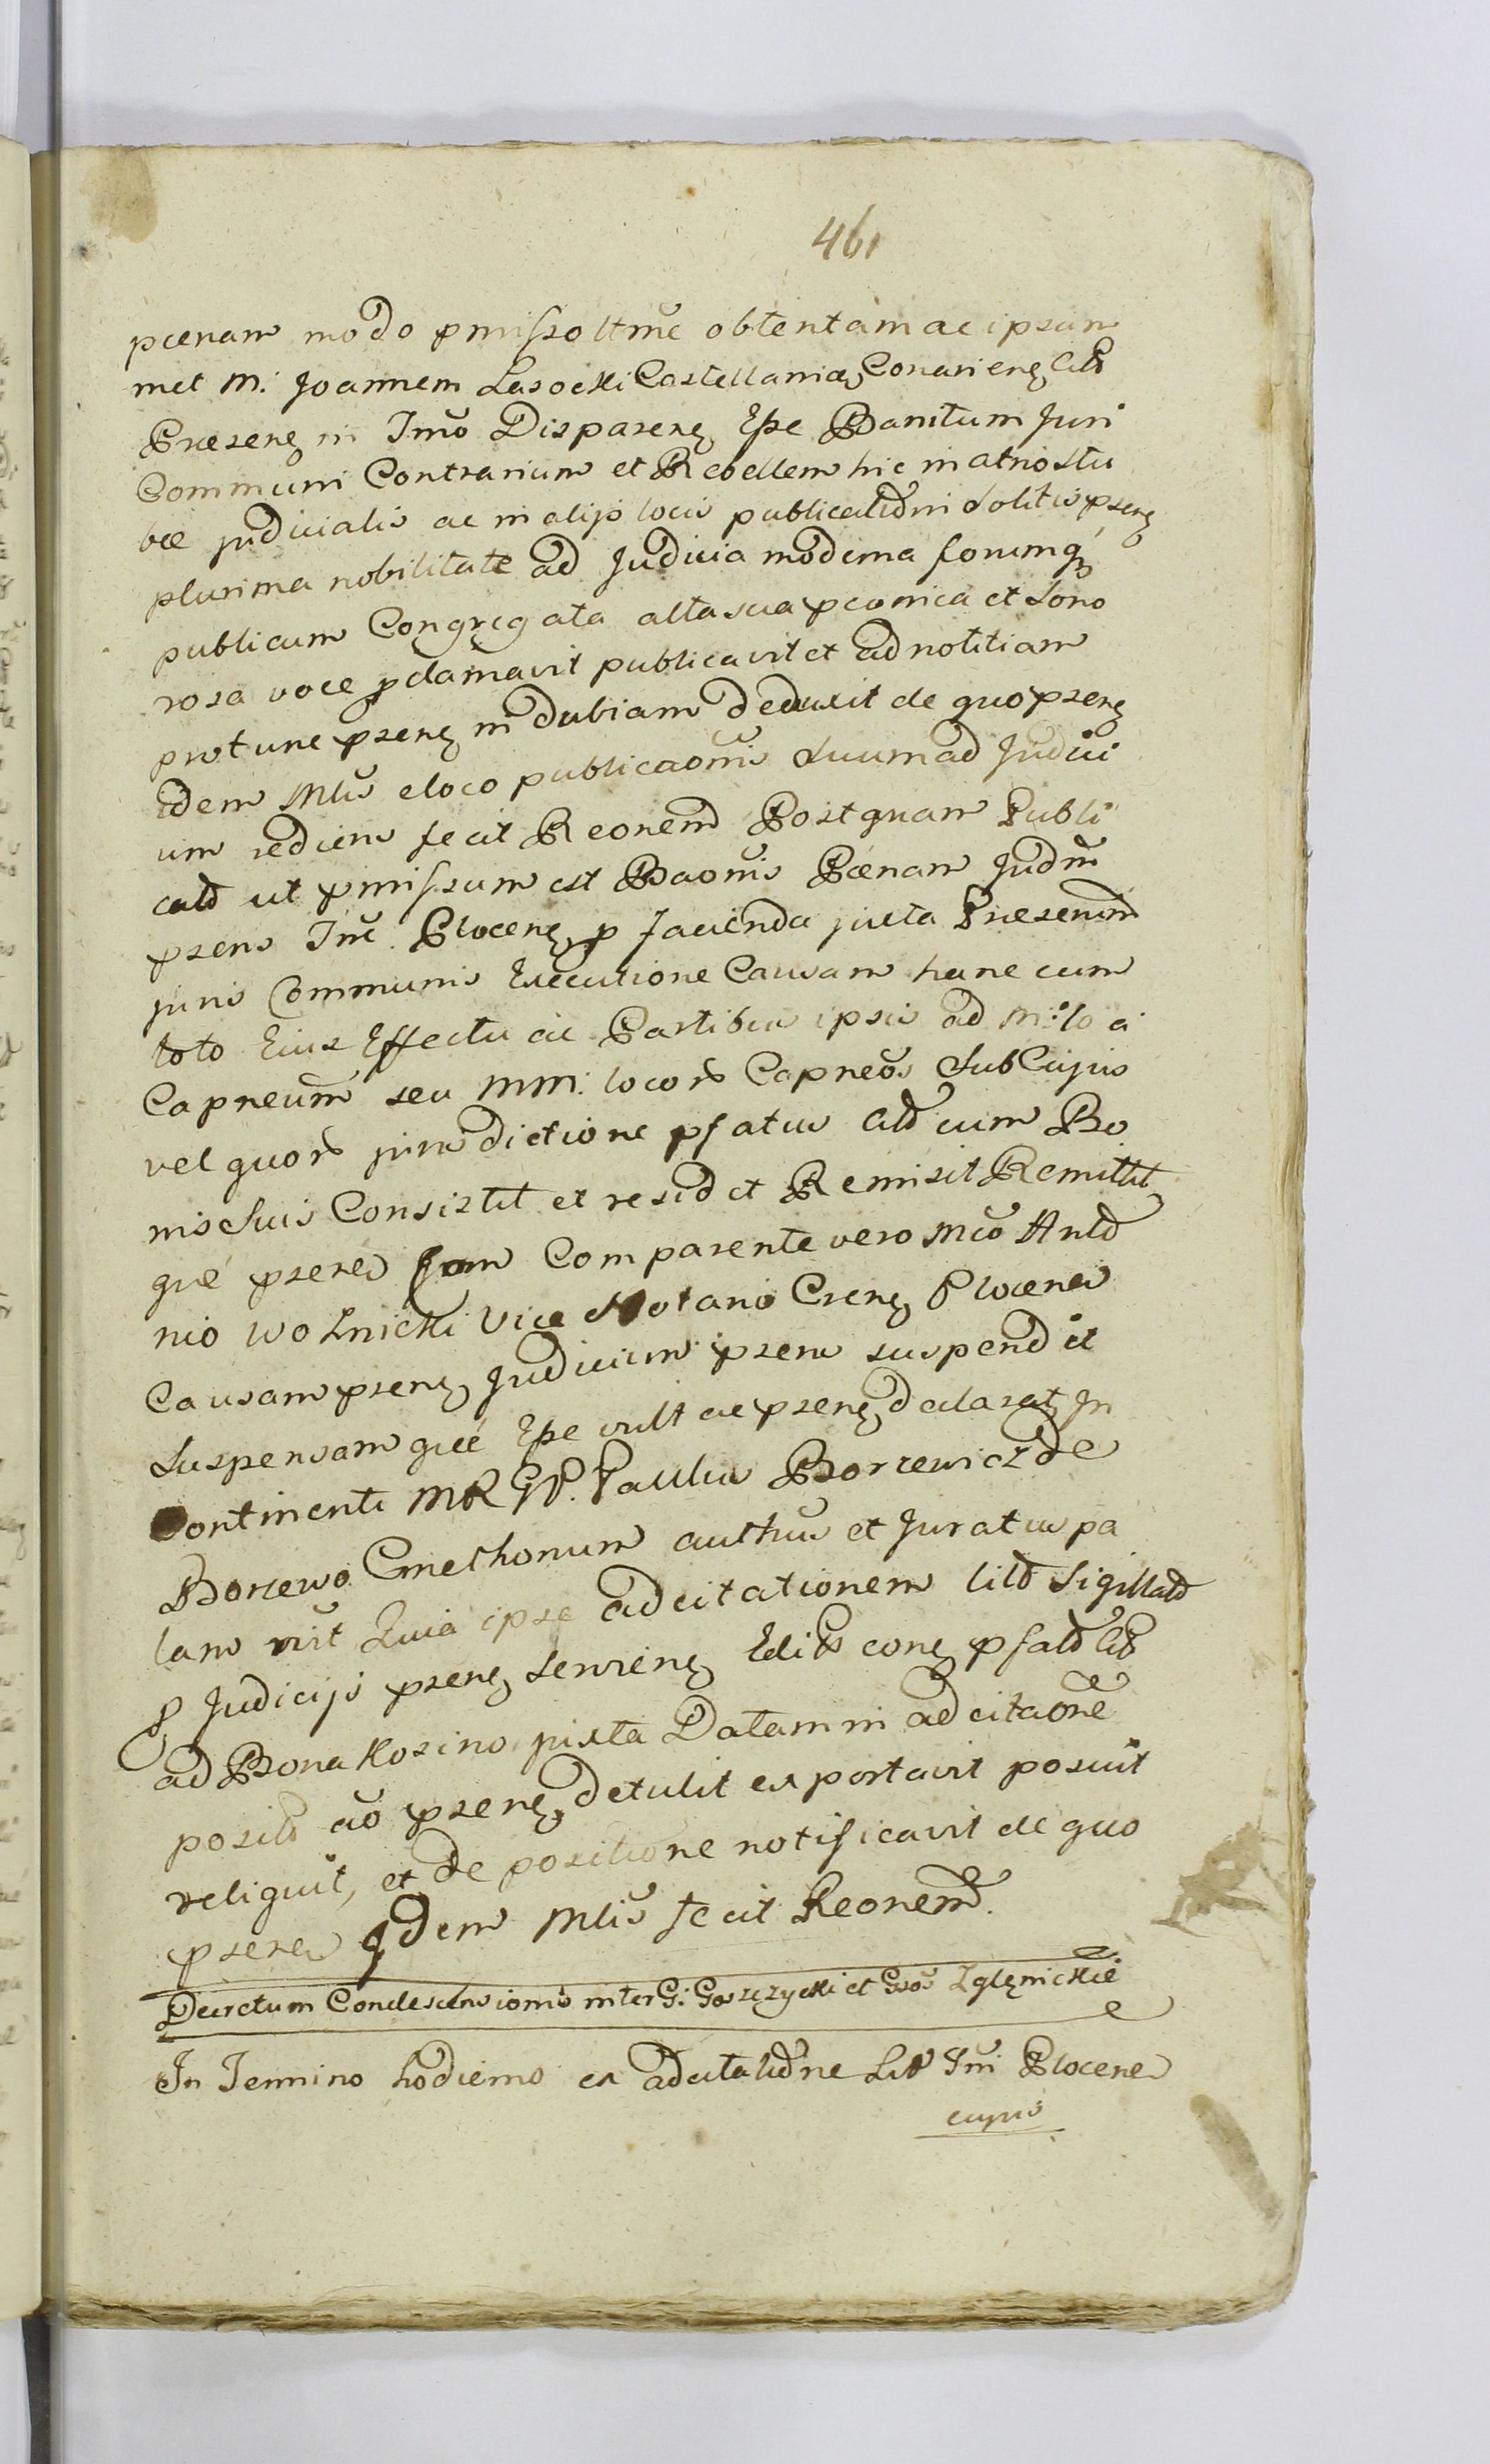 461
pœnam modo pmisso ltme obtentam ac ipsum
met M: Joannem Lasocki Castellanidę Conarienę Citt
Præsenę in Tmo Disparenę Esse Banitum Juri
Communi Contrarium et Rebellem hic in atrio stu
bæ judicialis ac in alijs locis publicationi solitis psenę
plurima nobilitate ad Judicia moderna forumq
publicum Congregata alta sua pconica et sono
rosa voce pclamavit publicavit et ad notitiam
protunc psenę in dubiam deduxit de quo psenę
idem Mlis e loco publicaonis suum ad Judici
um rediens fecit Reonem Postquam Publi
catã ut pmissum est Baonis Pœnam Judm
psens Tme Plocenę p facienda juxta Præscrim
juris Communis Executione Causam hanc cum
toto Eius Effectu ac Partibus ipsis ad M: lo ci
Capneum seu MM: locor Capneos Sub Cujus
vel quor jurisdictione pfatus Citt cum Bo
nis Suis Consistit et residet Remisit Remittit
que psens Jam Comparente vero Mco Anto
nio Woźnicki Vice Notario Csenę Plocens
Causam psenę Judicium psens suspendit
Suspensam que Esse vult ac psenę declarat, In
Continenti MRGP. Paulus Borzewicz de
Borzewo Cmethonum authus et Juratus pa
lam rvit Quia ipse adcitationem litt Sigillatt
p Judicijs psenę servienę Edit conę pfatt Citt
ad Bona Kosino juxta Datam in adcitaone
posit ao psenę detulit exportavit posuit
reliquit, et de positione notificavit de quo
psens Idem Mlis fecit Reonem.
Decretum Condescensionis inter G: Goszczycki et Gsos Zglęnickie
In Termino hodierno ex adcitatione Litt Tri Plocens
cujus